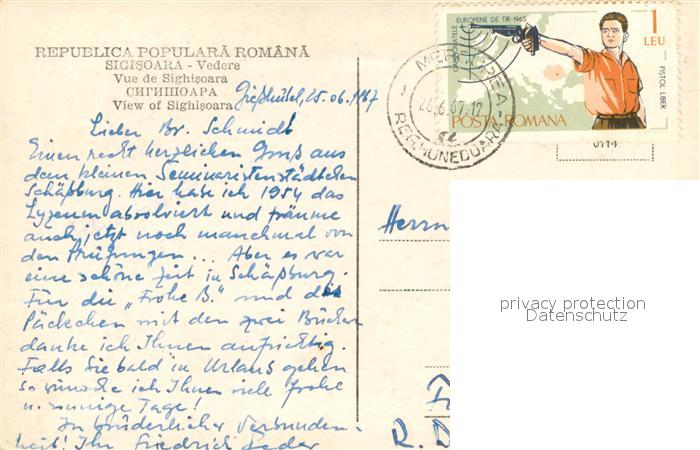 REPUBLICA POPULARĂ ROMÂNĂ
SIGIȘOARA - Vedere
Vue de Sighișoara
СИГИШОАРА
View of Sighișoara
25.06.1967
Lieber Br. Schmidt
Einen recht herzlichen Gruß aus
dem kleinen Seminaristenstädtchen
Schäßburg. Hier habe ich 1954 das
Lyzeum absolviert und träume
auch jetzt noch manchmal von
den Prüfungen... Aber es war
eine schöne Zeit in Schäßburg.
Für die „Frohe B." und das
Päckchen mit den zwei Büchern
danke ich Ihnen aufrichtig.
Falls Sie bald in Urlaub gehen
so wünsche ich Ihnen viele frohe
u. sonnige Tage!
In brüderlicher Verbunden-
heit! Ihr Friedrich
CAMPIONATELE EUROPENE DE TIR-1965
1
LEU
PISTOL LIBER
POSTA ROMANA
26.6.67.12
REG. HUNEDOARA
Herrn
R. D
privacy protection
Datenschutz